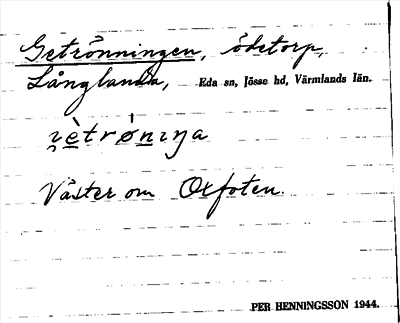 Getrönningen, ödetorp,
Långlanda, Eda sn, Jösse hd, Värmlands län.
i̯ètrǿnɩŋa
Väster om Oxfoten.
PER HENNINGSSON 1944.